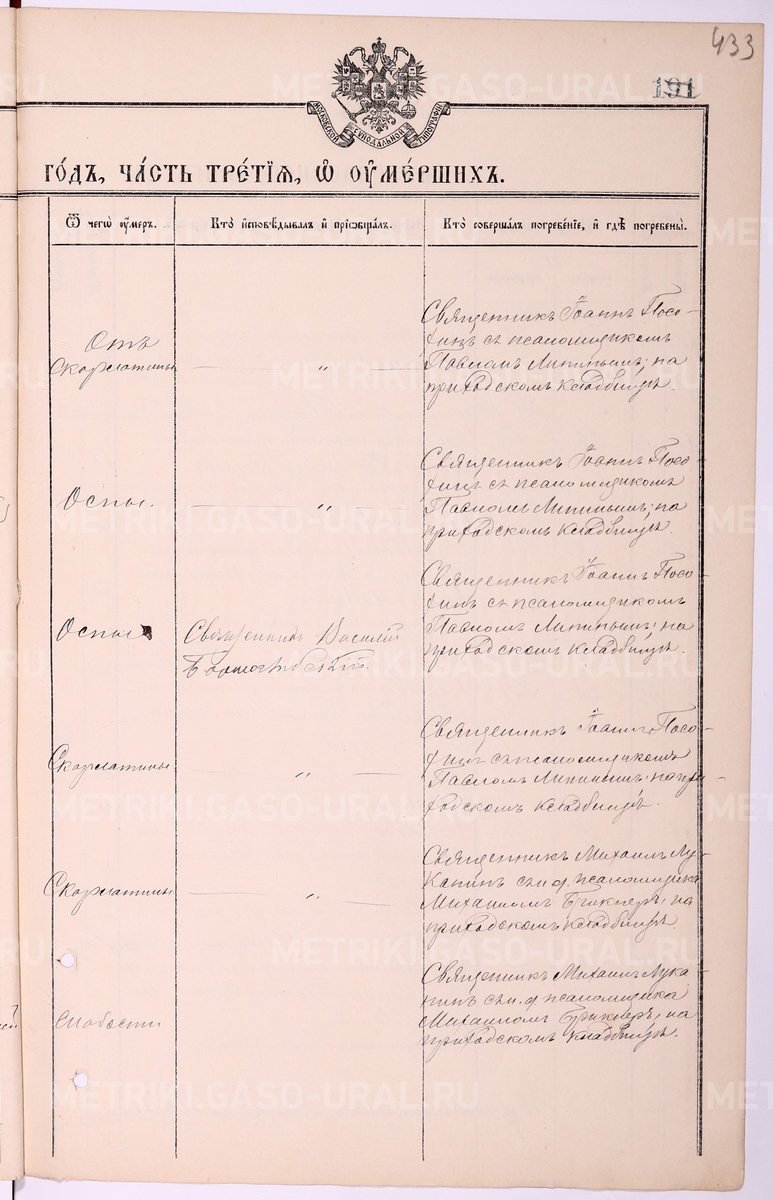 433
191
МОСКОВСКОЙ СУНОДАЛЬНОЙ ТИПОГРАФІИ
ГО́ДЪ, ЧА́СТЬ ТРЕ́ТІЯ, Ѡ҆ ОУ҆МЕ́РШИХЪ.
Ѿ чегѡ̀ оу҆́меръ.
Кто̀ и҆сповѣ́дывалъ и҆ прїѡбща́лъ.
Кто̀ соверша́лъ погребе́нїе, и҆ гдѣ̀ погребены̀.
Отъ
Скарлатины
— „ —
Священникъ Іоаннъ Посо-
хинъ съ псаломщикомъ
Павломъ Липинымъ; на
приходскомъ кладбищѣ.
Оспы.
— „ —
Священникъ Іоаннъ Посо-
хинъ съ псаломщикомъ
Павломъ Липинымъ; на
приходскомъ кладбищѣ.
Оспы
Священникъ Василій
Священникъ Іоаннъ Посо-
хинъ съ псаломщикомъ
Павломъ Липинымъ; на
приходскомъ кладбищѣ.
Скарлатины
— „ —
Священникъ Іоаннъ Посо-
хинъ съ псаломщикомъ
Павломъ Липинымъ; на при-
ходскомъ кладбищѣ.
Скарлатины
— „ —
Священникъ Михаилъ Лу-
канинъ съ и. д. псаломщика
Михаиломъ на
приходскомъ кладбищѣ.
Слабости
Священникъ Михаилъ Лука-
нинъ съ и. д. псаломщика
Михаиломъ на
приходскомъ кладбищѣ.
METRIKI.GASO-URAL.RU